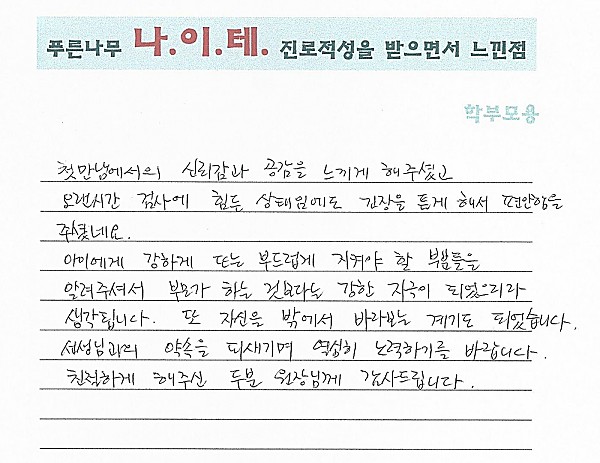 푸른나무 나.이.테. 진로적성을 받으면서 느낀점
학부모용
첫만남에서의 신뢰감과 공감을 느끼게 해주셨고
오랜시간 검사에 힘든 상태임에도 긴장을 풀게 해서 편안함을
주셨네요.
아이에게 강하게 또는 부드럽게 지켜야 할 부분들을
알려주셔서 부모가 하는 것보다는 강한 자극이 되었으리라
생각됩니다. 또 자신을 밖에서 바라보는 계기도 되었습니다.
선생님과의 약속을 되새기며 열심히 노력하기를 바랍니다.
친절하게 해주신 두분 원장님께 감사드립니다.